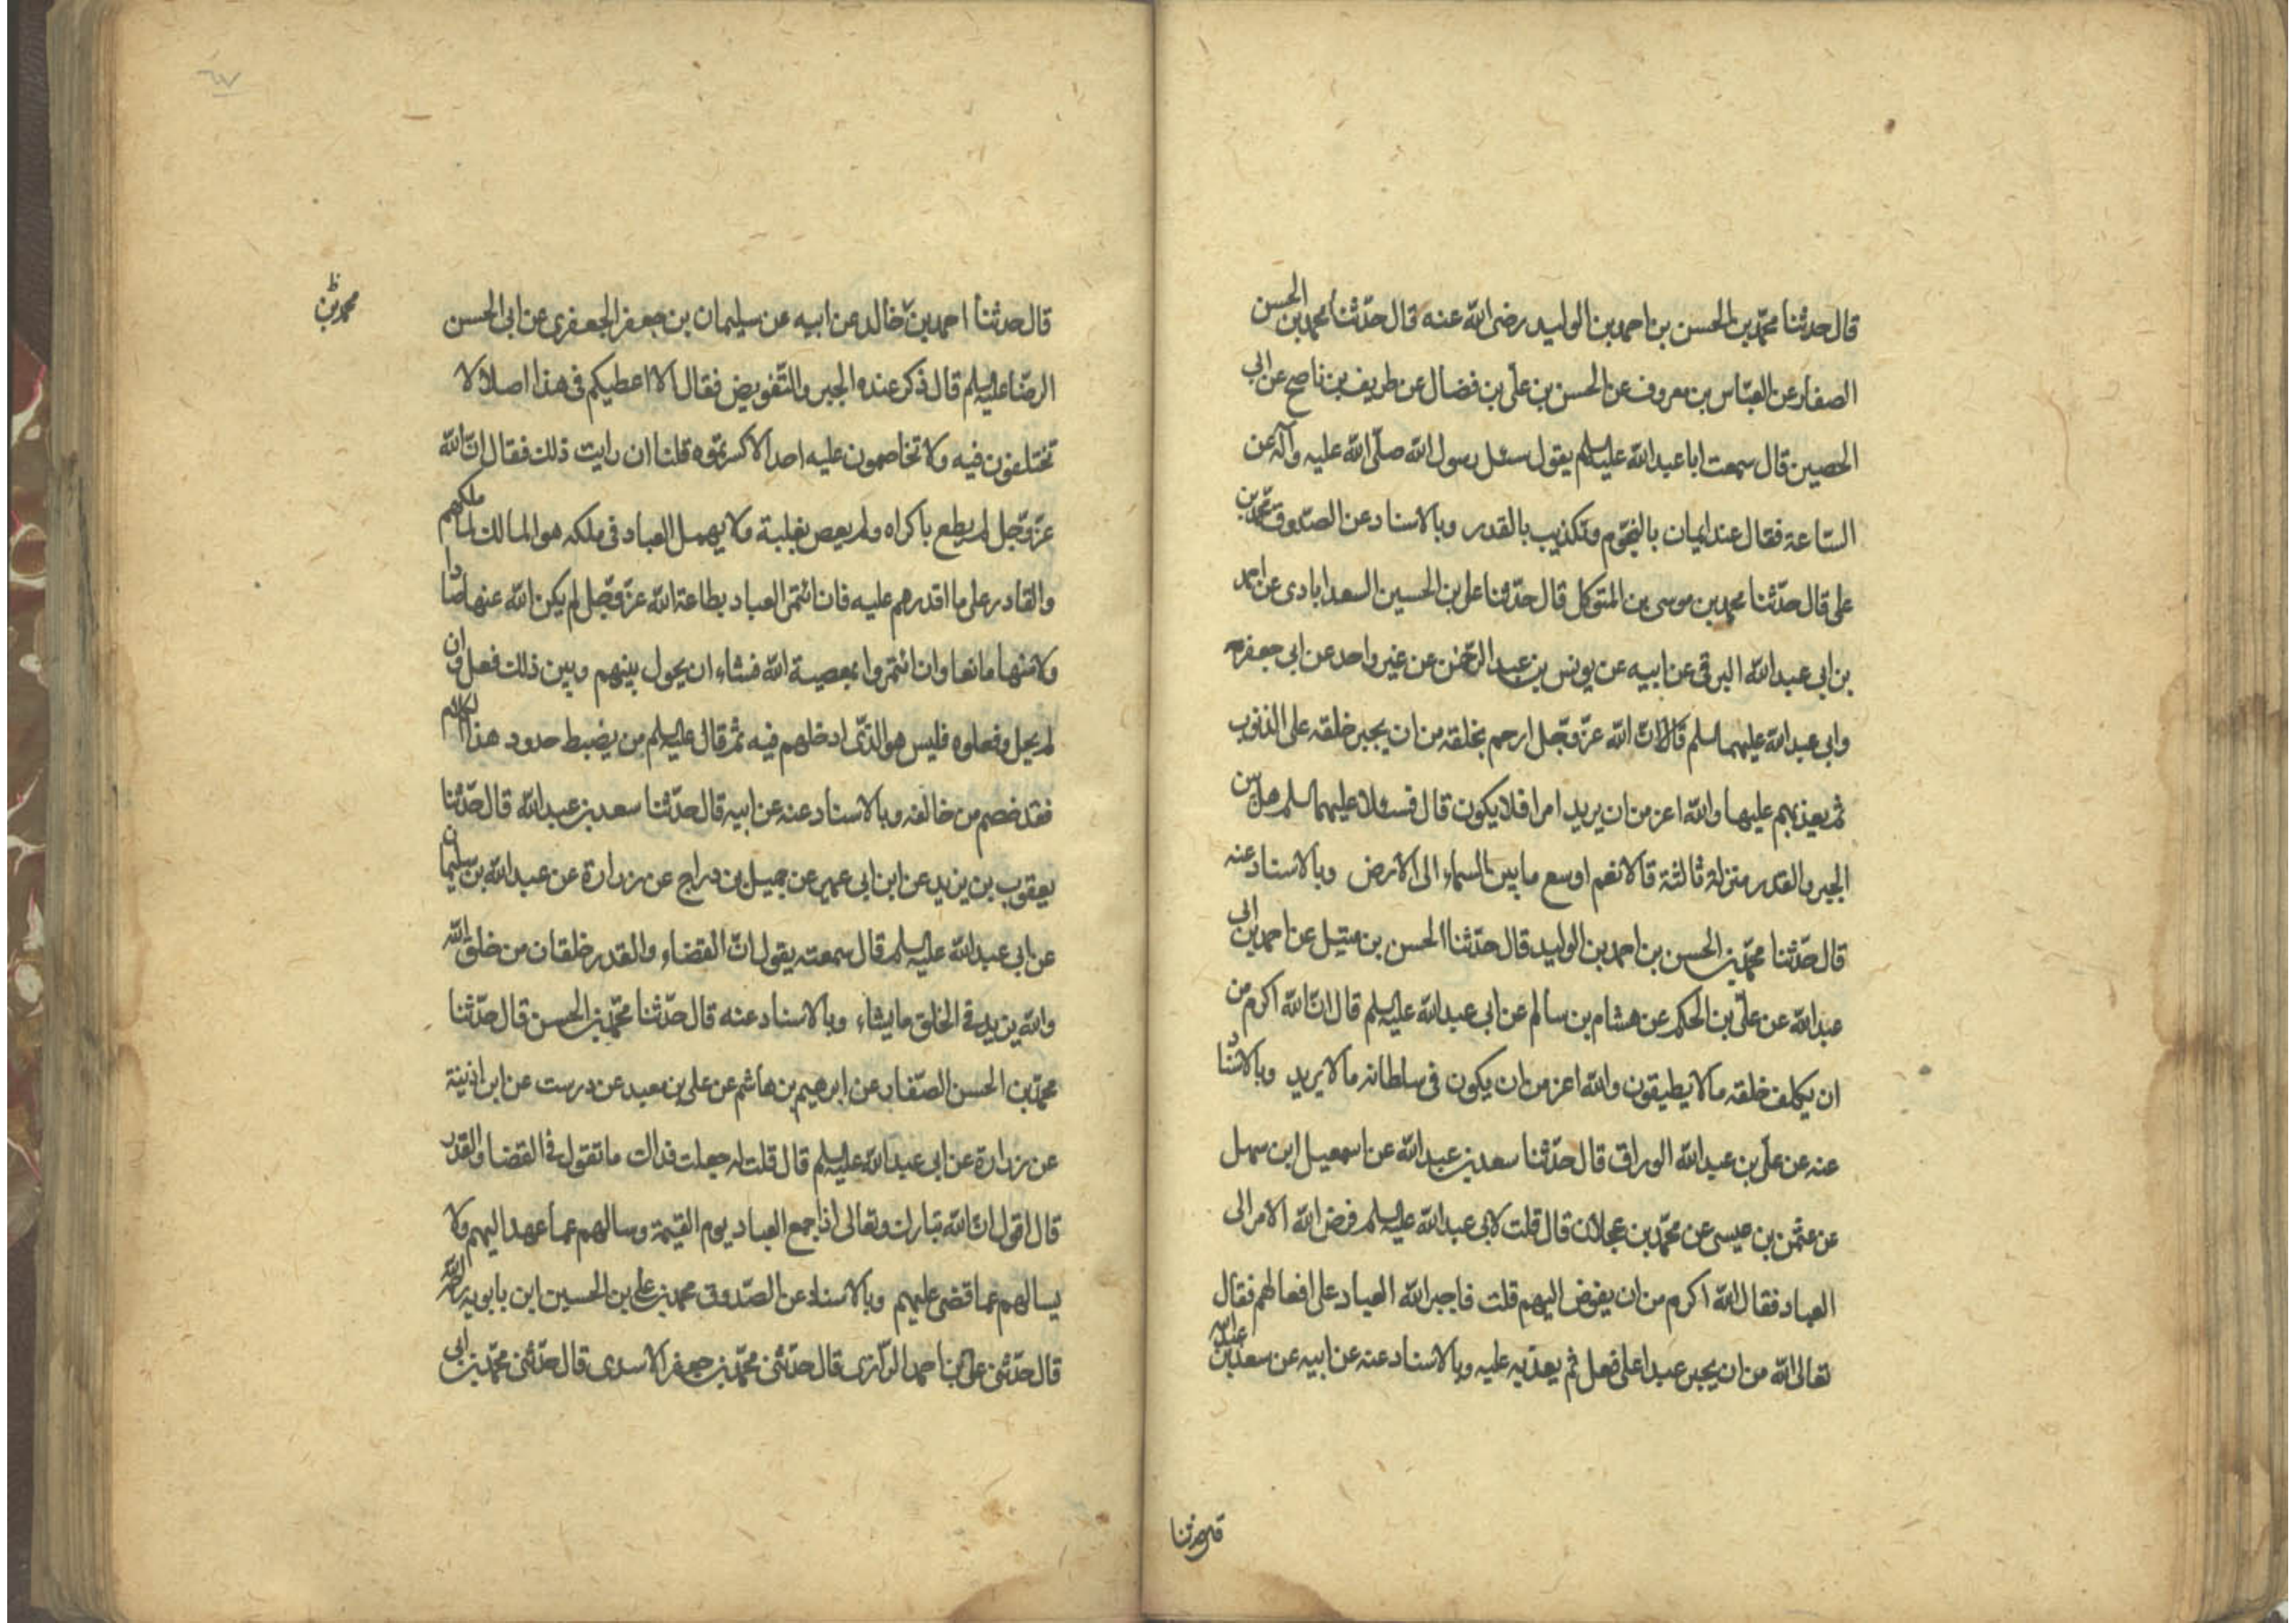 قال حدثنا محمد بن الحسن بن احمد بن الوليد رضى الله عنه قال حدثنا محمد بن الحسن
الصفار عن العباس بن معروف عن الحسن بن علي بن فضال عن طريف بن ناصح عن ابى
الحصين قال سمعت ابا عبد الله عليه السلم يقول سئل رسول الله صلى الله عليه وآله عن
الساعة فقال عند ايمان بالنجوم وتكذيب بالقدر وبالاسناد عن الصدوق محمد بن
على قال حدثنا محمد بن موسى بن المتوكل قال حدثنا على بن الحسين السعدابادى عن احمد
بن ابى عبد الله البرقى عن ابيه عن يونس بن عبد الرحمن عن غير واحد عن ابى جعفر
وابى عبد الله عليهما السلم قالا ان الله عز وجل ارحم بخلقه من ان يجبر خلقه على الذنوب
ثم يعذبهم عليها والله اعز من ان يريد امرا فلا يكون قال فسئلا عليهما السلم هل بين
الجبر والقدر منزلة ثالثة قالا نعم اوسع ما بين السماء الى الارض وبالاسناد عنه
قال حدثنا محمد بن الحسن بن احمد بن الوليد قال حدثنا الحسن بن متيل عن احمد بن ابى
عبد الله عن على بن الحكم عن هشام بن سالم عن ابى عبد الله عليه السلم قال ان الله اكرم من
ان يكلف خلقه ما لا يطيقون والله اعز من ان يكون فى سلطانه ما لا يريد وبالاسناد
عنه عن على بن عبد الله الوراق قال حدثنا سعد بن عبد الله عن اسمعيل ابن سهل
عن عثمن بن عيسى عن محمد بن عجلان قال قلت لابى عبد الله عليه السلم فوض الله الامر الى
العباد فقال الله اكرم من ان يفوض اليهم قلت فاجبر الله العباد على افعالهم فقال
تعالى الله من ان يجبر عبدا على فعل ثم يعذبه عليه وبالاسناد عنه عن ابيه عن سعد بن عبد الله
قال حدثنا
٦٧
قال حدثنا احمد بن خالد عن ابيه عن سليمان بن جعفر الجعفرى عن ابى الحسن
محمد بن ظ
الرضا عليه السلم قال ذكر عنده الجبر والتفويض فقال الا اعطيكم فى هذا اصلا لا
تختلفون فيه ولا تخاصمون عليه احدا الا كسرتموه قلنا ان رايت ذلك فقال ان الله
عز وجل لم يطع باكراه ولم يعص بغلبة ولا يهمل العباد فى ملكه هو المالك لما ملكهم
والقادر على ما اقدرهم عليه فان ائتمن العباد بطاعة الله عز وجل لم يكن الله عنها صادا
ولا منها مانعا وان ائتمروا بمعصية الله فشاء ان يحول بينهم وبين ذلك فعل وان
لم يحل وفعلوه فليس هو الذى ادخلهم فيه ثم قال عليه السلم من يضبط حدود هذا الكلام
فقد خصم من خالفه وبالاسناد عنه عن ابيه قال حدثنا سعد بن عبد الله قال حدثنا
يعقوب بن يزيد عن ابن ابى عمير عن جميل بن دراج عن زرارة عن عبد الله بن سليمان
عن ابى عبد الله عليه السلم قال سمعته يقول ان القضاء والقدر خلقان من خلق الله
والله يزيد فى الخلق ما يشاء وبالاسناد عنه قال حدثنا محمد بن الحسن قال حدثنا
محمد بن الحسن الصفار عن ابرهيم بن هاشم عن على بن معبد عن درست عن ابن اذينة
عن زرارة عن ابى عبد الله عليه السلم قال قلت له جعلت فداك ما تقول فى القضا والقدر
قال اقول ان الله تبارك وتعالى اذا جمع العباد يوم القيمة وسالهم عما عهد اليهم ولا
يسالهم عما قضى عليهم وبالاسناد عن الصدوق محمد بن على بن الحسين ابن بابويه رحمه الله
قال حدثنى على بن احمد الرازى قال حدثنى محمد بن جعفر الاسدى قال حدثنى محمد بن ابى